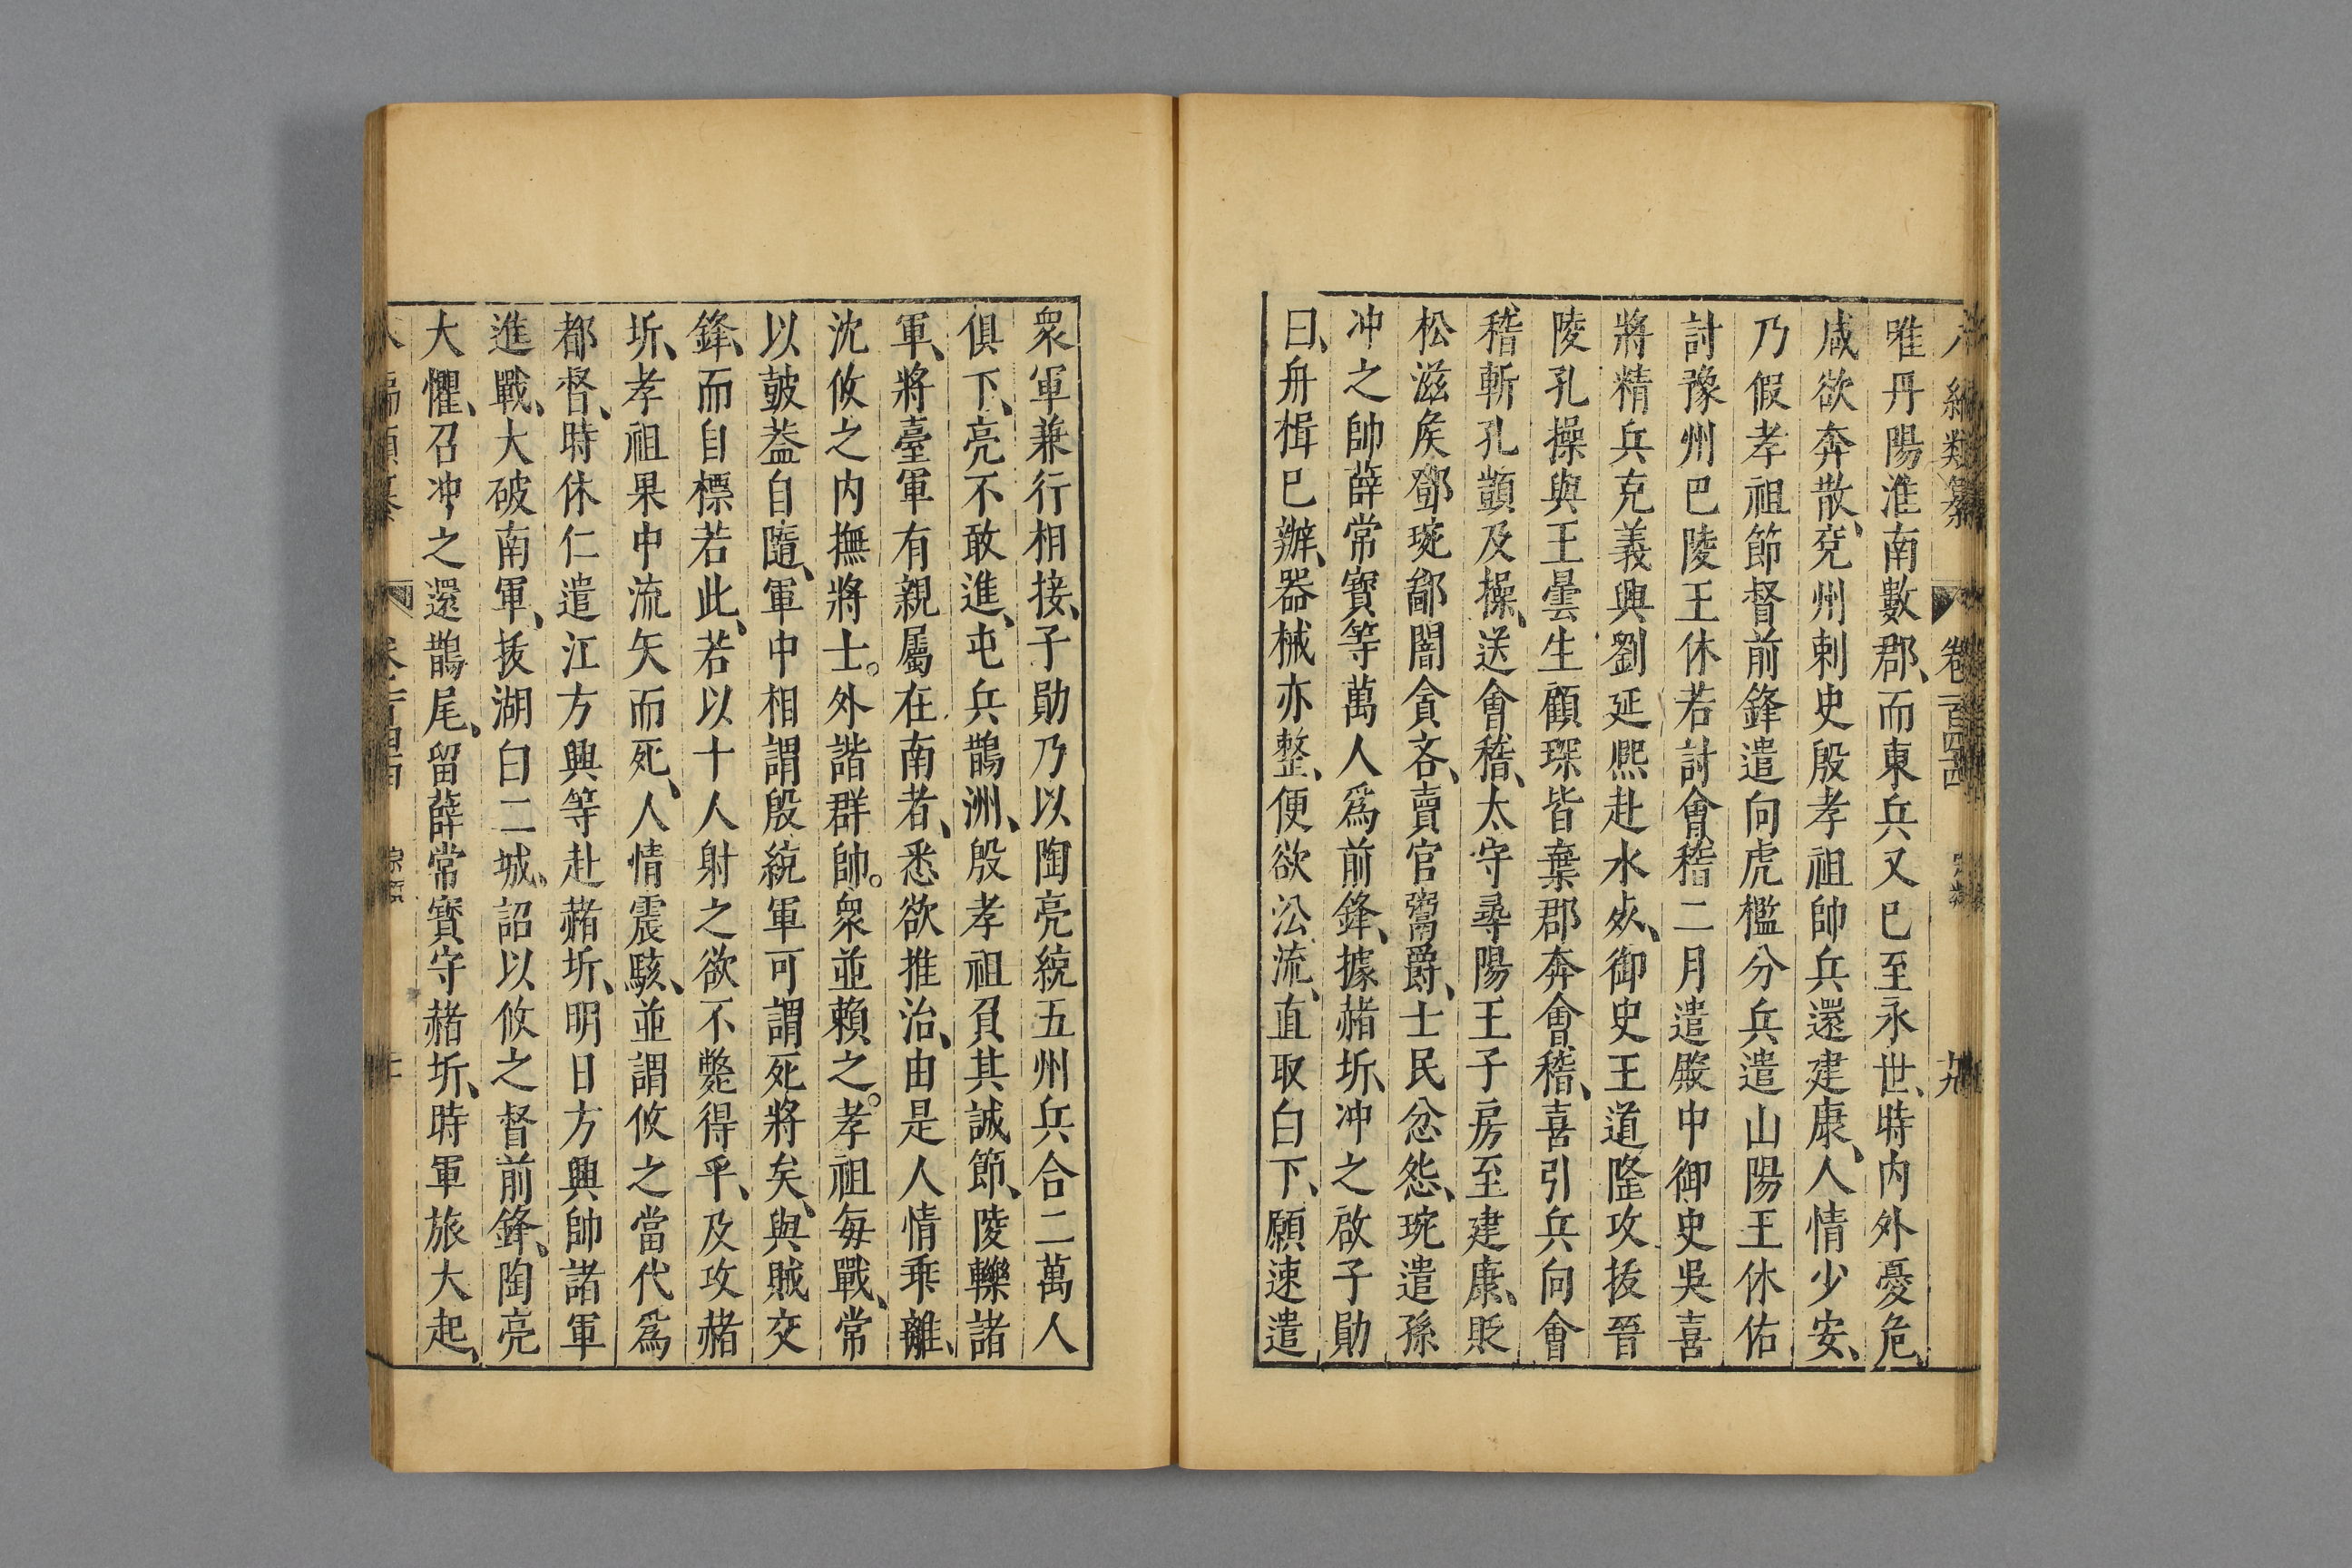 八編類纂 卷一百四十四 宗類 十九
唯丹陽淮南數郡、而東兵又已至永世、時内外憂危、
咸欲奔散、兗州刺史殷孝祖帥兵還建康、人情少安、
乃假孝祖節督前鋒遣向虎檻分兵遣山陽王休佑
討豫州巴陵王休若討會稽二月遣殿中御史吳喜
將精兵克義興劉延熙赴水死、御史王道隆攻拔晉
陵孔操與王曇生顧琛皆棄郡奔會稽、喜引兵向會
稽斬孔顗及操、送會稽、太守尋陽王子房至建康、貶
松滋矦鄧琬鄙闇貪吝、賣官鬻爵、士民忿怨、琬遣孫
冲之帥薛常寶等萬人爲前鋒、據赭圻、冲之啟子勛
曰、舟楫已辦、器械亦整、便欲㳂流、直取白下、願速遣
衆軍兼行相接、子勛乃以陶亮統五州兵合二萬人
俱下、亮不敢進、屯兵鵲洲、殷孝祖負其誠節、陵轢諸
軍、將臺軍有親屬在南者、悉欲推治、由是人情乖離、
沈攸之内撫將士。外諧群帥。衆並賴之。孝祖每戰、常
以鼓葢自隨、軍中相謂殷統軍可謂死將矣、與賊交
鋒、而自標若此、若以十人射之欲不斃得乎、及攻赭
圻、孝祖果中流矢而死、人情震駭、並謂攸之當代爲
都督、時休仁遣江方興等赴赭圻、明日方興帥諸軍
進戰、大破南軍、拔湖白二城、詔以攸之督前鋒、陶亮
大懼、召冲之還鵲尾、留薛常寶守赭圻、時軍旅大起、